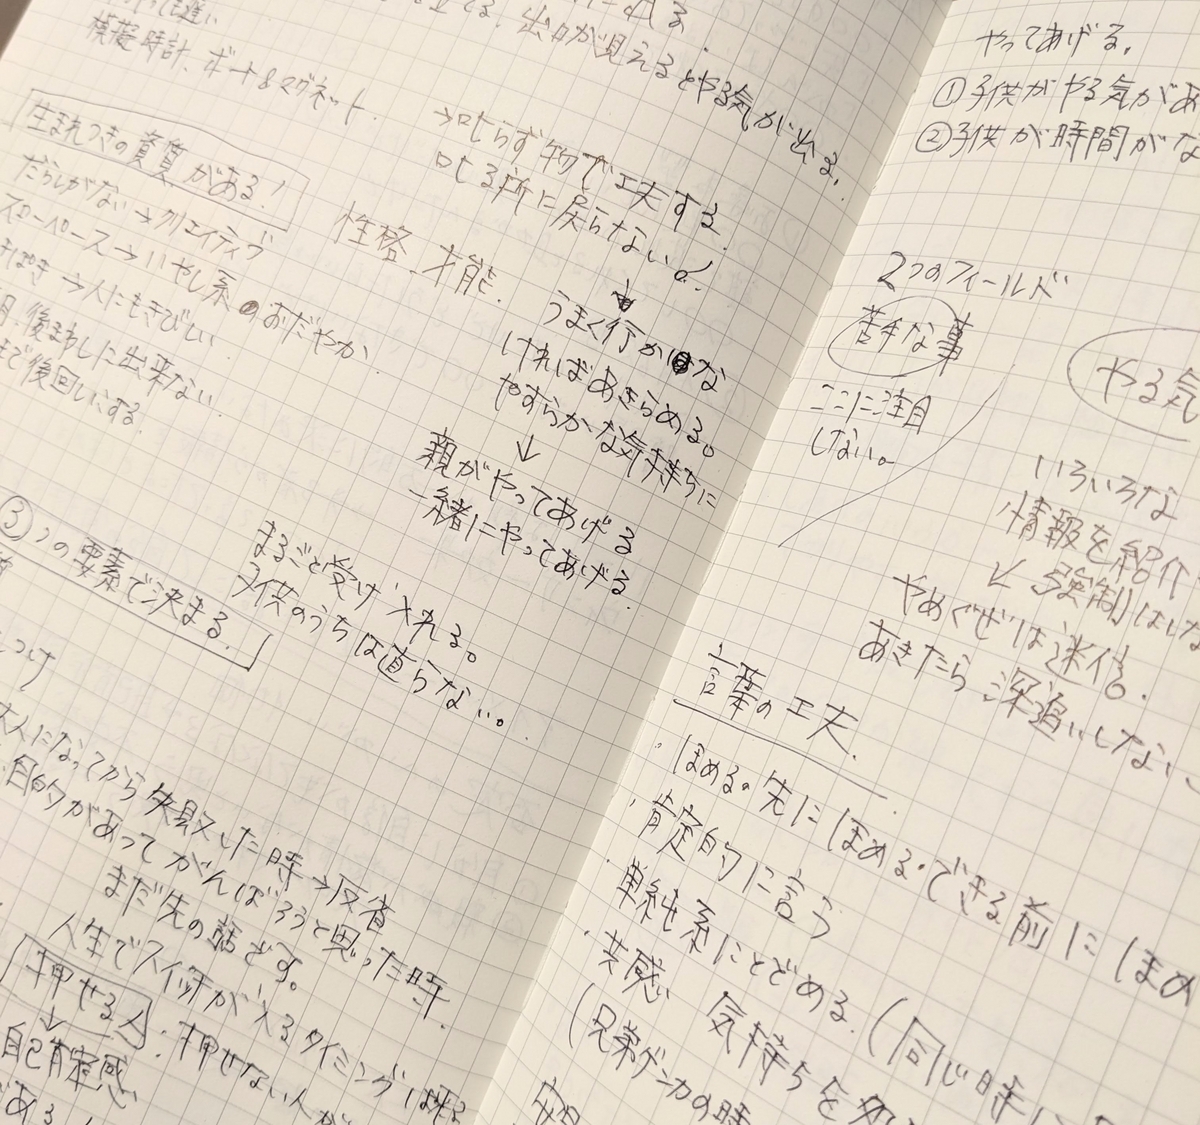 出口が見えるとやる気が出る。
模擬時計、ボード&マグネット.
→叱らず物で工夫する.
叱る所に戻らない!
生まれつきの資質がある!
だらしがない→クリエイティブ
スローペース→いやし系 おだやか
きぱき→人にもきびしい.
後まわしに出来ない.
まで後回しにする.
性格.才能.
↓
うまく行かな
ければあきらめる。
やすらかな気持ちに
↓
親がやってあげる
一緒にやってあげる.
まるごと受け入れる。
子供のうちは直らない。
③つの要素で決まる.
大人になってから失敗した時→反省
目的があってがんばろうと思った時.
まだ先の話です。
人生でスイッチが入るタイミングは
押せる人.押せない人が
↓
自己肯定感
がある!
やってあげる.
①子供がやる気があ
②子供が時間がな
2つのフィールド
苦手な事
ここに注目
しない。
やる気
いろいろな
情報を紹介
↙ 強制はしな
やめぐせは迷信.
あきたら深追いしない
言葉の工夫.
・ほめる。先にほめる・できる前にほめ
・肯定的に言う
・単純系にとどめる.(同じ時に
・共感 気持ちを
(兄弟ゲンカの時